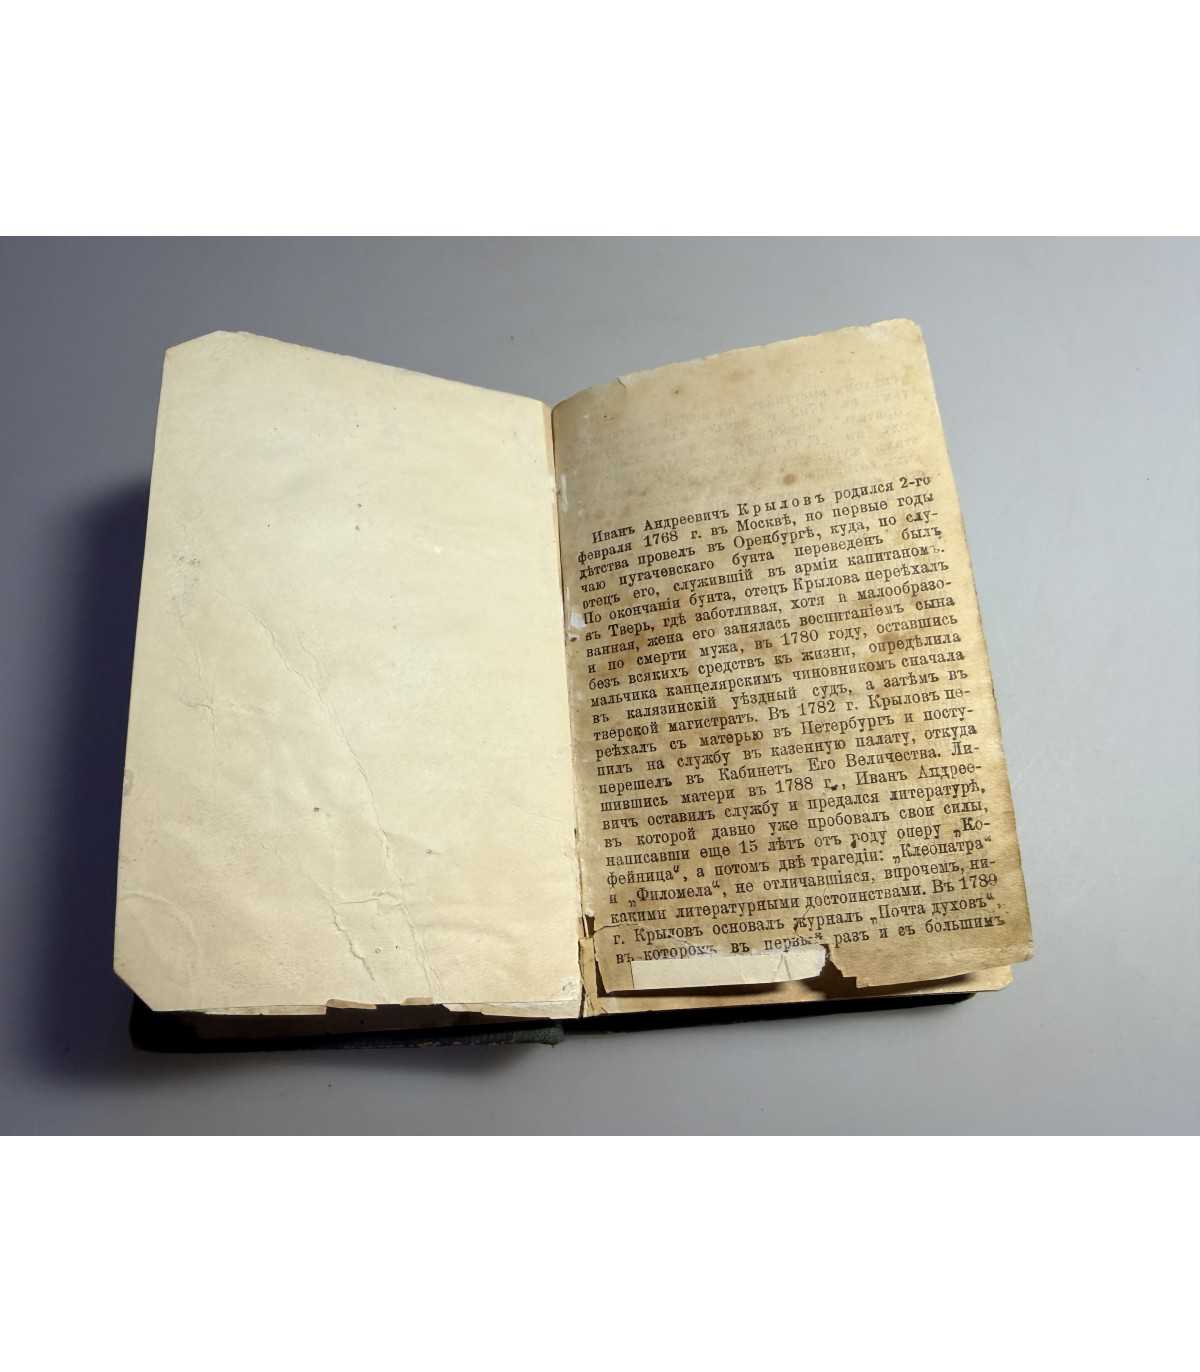 Иванъ Андреевичъ Крыловъ родился 2-го
февраля 1768 г. въ Москвѣ, но первые годы
дѣтства провелъ въ Оренбургѣ, куда, по слу-
чаю пугачевскаго бунта переведенъ былъ
отецъ его, служившій въ арміи капитаномъ.
По окончаніи бунта, отецъ Крылова переѣхалъ
въ Тверь, гдѣ заботливая, хотя и малообразо-
ванная, жена его занялась воспитаніемъ сына
и по смерти мужа, въ 1780 году, оставшись
безъ всякихъ средствъ къ жизни, опредѣлила
мальчика канцелярскимъ чиновникомъ сначала
въ калязинскій уѣздный судъ, а затѣмъ въ
тверской магистратъ. Въ 1782 г. Крыловъ пе-
реѣхалъ съ матерью въ Петербургъ и посту-
пилъ на службу въ казенную палату, откуда
перешелъ въ Кабинетъ Его Величества. Ли-
шившись матери въ 1788 г., Иванъ Андрее-
вичъ оставилъ службу и предался литературѣ,
въ которой давно уже пробовалъ свои силы,
написавши еще 15 лѣтъ отъ роду оперу „Ко-
фейница“, а потомъ двѣ трагедіи: „Клеопатра“
и „Филомела“, не отличавшіяся, впрочемъ, ни-
какими литературными достоинствами. Въ 1789
г. Крыловъ основалъ журналъ „Почта духовъ“,
въ которохъ въ первый разъ и съ большимъ